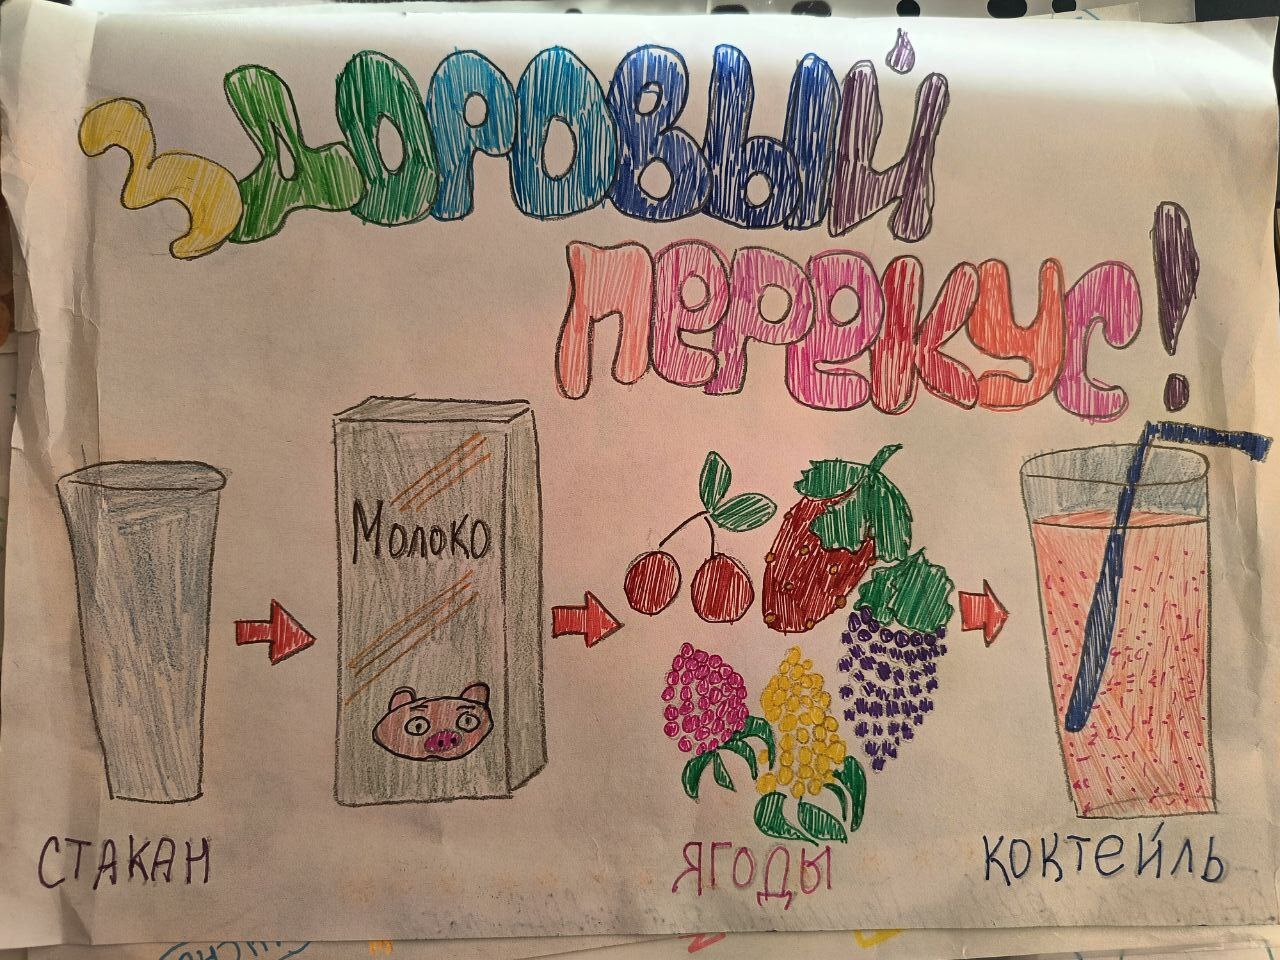 ЗДОРОВЫЙ
ПЕРЕКУС!
МОЛОКО
СТАКАН
ЯГОДЫ
КОКТЕЙЛЬ